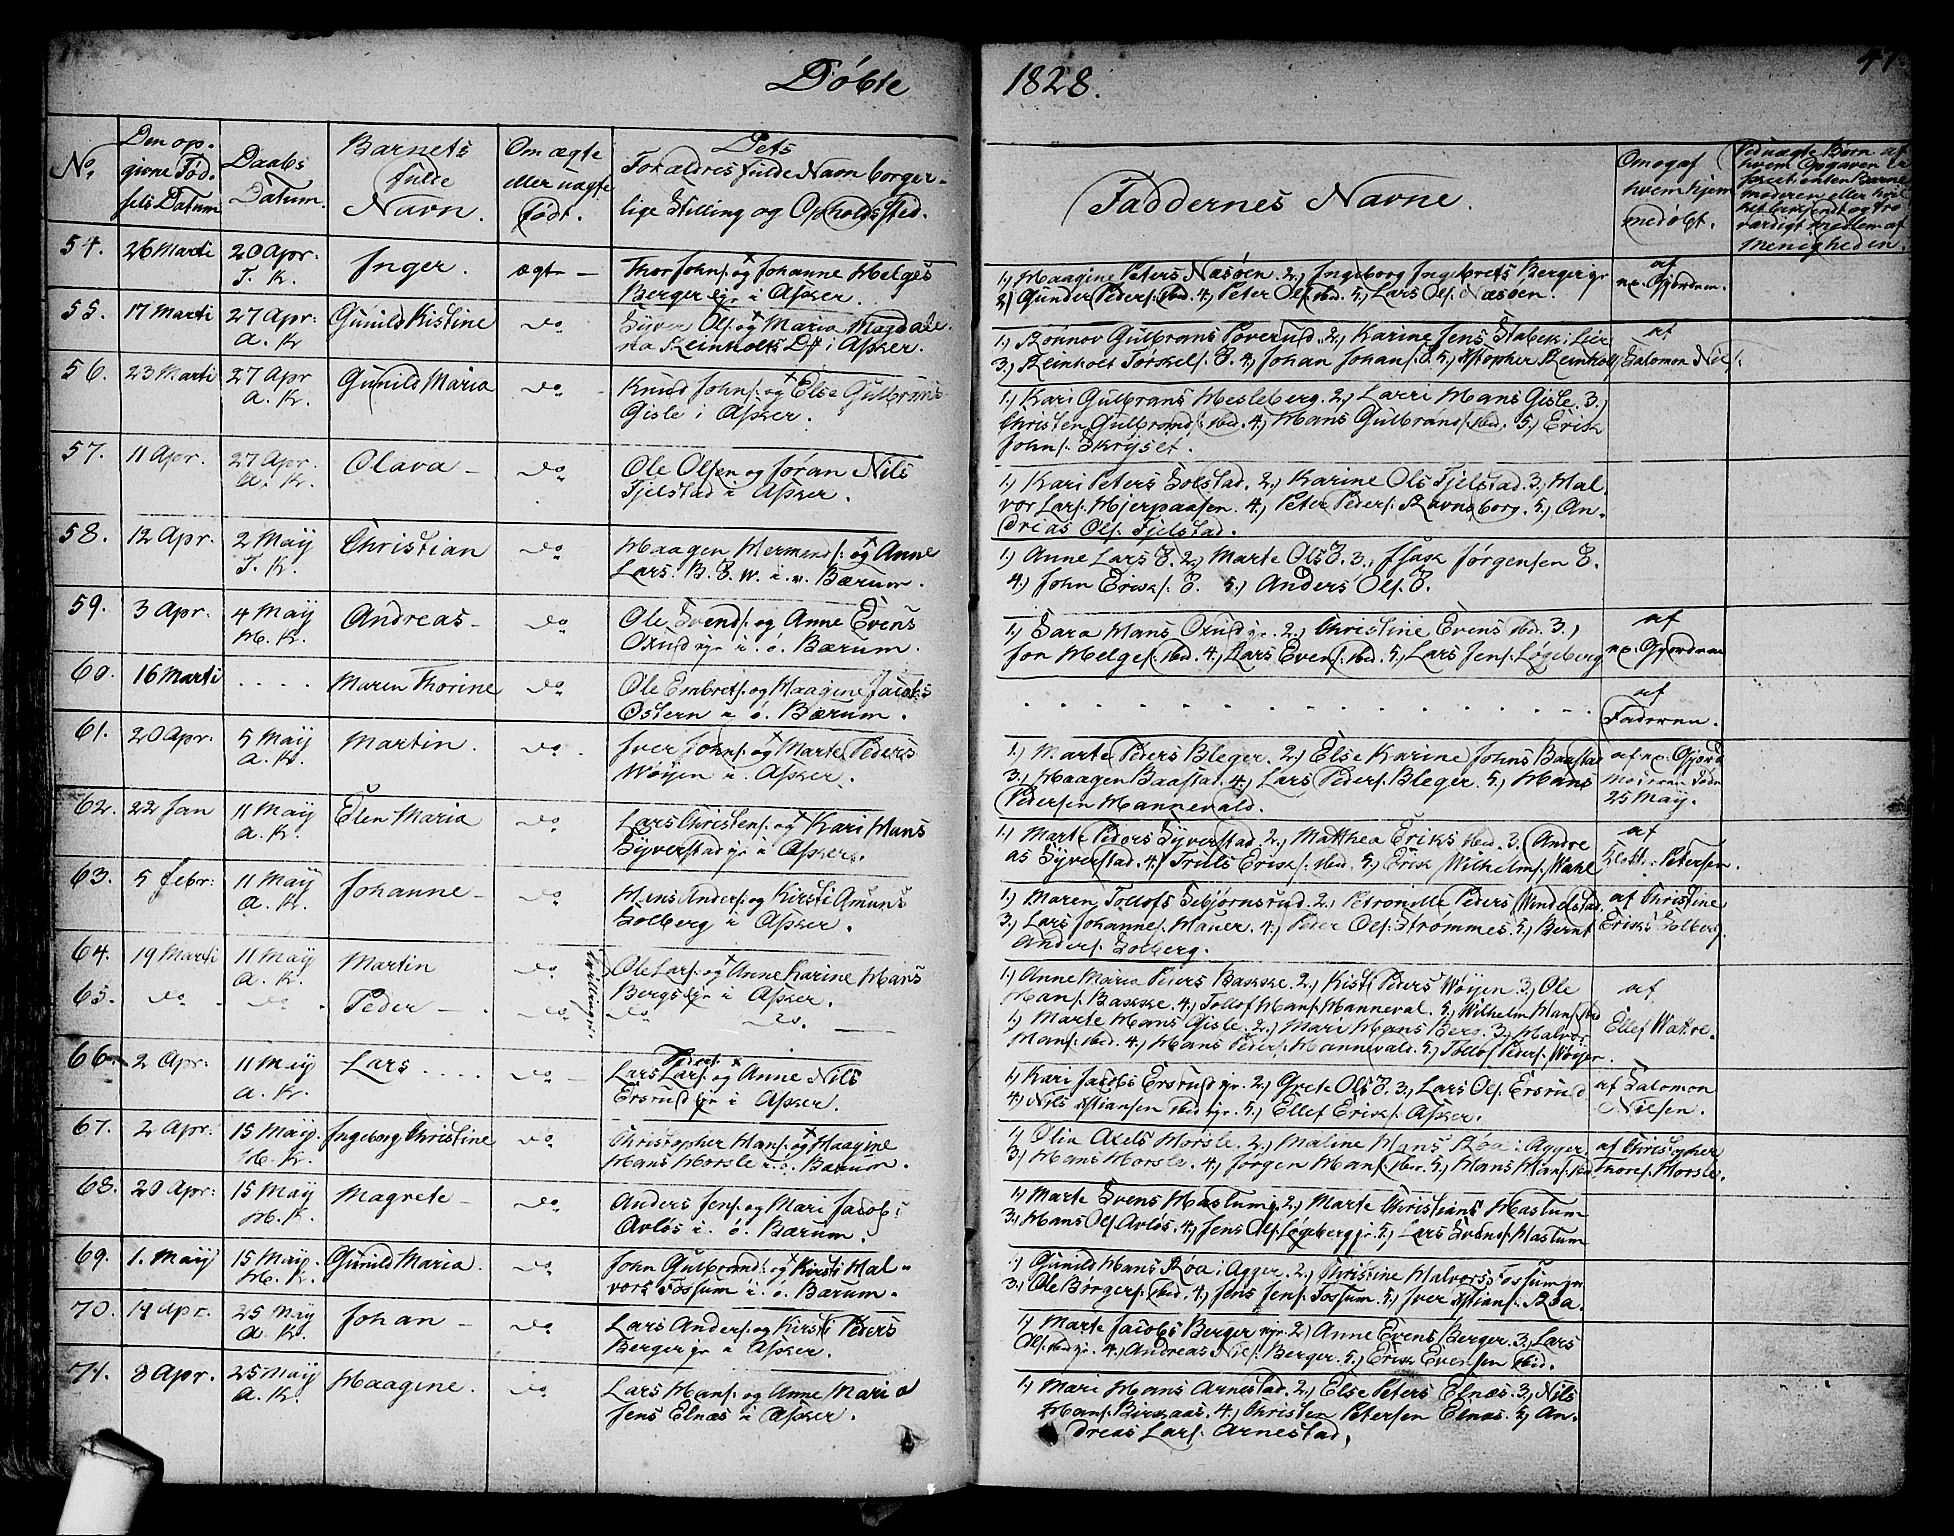 Døbte
1828.
47.
No
Den op-
givne Fød-
sels Datum
Daabs
Datum.
Barnets
fulde
Navn.
Om ægte
eller uægte
Født.
Dets
Forældres fulde Navn borger-
lige Stilling og Opholdsted.
Faddernes Navne.
Om og af
hvem hjem
medøbt.
54. 26 Marti 20 Apr. Inger. ægte — Thor Johns. og Johanne Helges
T. K. Berger Eje i Asker.
1.) Haagine Peters Næsøen. 2.) Ingeborg Ingebrets Berger gr
3.) Gunder Peders. ibid. 4.) Peter Ols. ibid. 5.) Lars Ols. Næsøen.
af
nx. Gjordem.
55. 17 Marti 27 Apr: Gunild Kistine do Syver Ols. og Maria Magdale
A. K. na Reinholts Df i Asker.
1.) Rønnov Gulbrans Poverud. 2.) Karine Jens Stabek i Lier
3.) Reinholt Torskels. E. 4.) Johan Johans. E. 5.) Xstopher Reinholt
af
Salomon Niels.
56. 23 Marti 27 Apr Gunild Maria do Knud Johns. og Else Gulbrans
A. K. Gisle i Asker.
1.) Kari Gulbrans Hesleberg. 2.) Larri Hans Gisle. 3.)
Christen Gulbrands. ibid. 4.) Hans Gulbrans. ibid. 5.) Erik
Johns. Skryset.
57. 11 Apr. 27 Apr. Olava — do Ole Olsen og Jøran Nils
A. K. Tjelstad i Asker.
1.) Kari Peters Solstad. 2.) Karine Ols Tjelstad. 3.) Hal-
vor Lars. Hjerpaasen. 4.) Peter Peders. Ravnsborg. 5.) An-
drias Ols. Tjelstad.
58. 12 Apr. 2 May Christian do Haagen Hermends. og Anne
T. K. Lars. B. E. W. i. v. Bærum.
1.) Anne Lars E. 2.) Marte Ols E. 3.) Isak Jørgensen E.
4.) John Eriks. E. 5.) Anders Ols. E.
59. 3 Apr. 4 May Andreas — do Ole Svends. og Anne Evens
H. K. Oxrud eje i. ø. Bærum.
1.) Sara Hans Oxrud gr. 2.) Christine Evens ibid. 3.)
Jon Helges. ibid. 4.) Lars Evens. ibid. 5.) Lars Jens. Løgeberg
af
nx. Gjordem
60. 16 Marti .... Maren Thorine do Ole Embrets. og Haagine Jacobs
Ostern i ø. Bærum.
af
Faderen.
61. 20 Apr. 5 May Martin. do Iver Johns. og Marte Peders
A. K. Wøyen i Asker.
1.) Marte Peders Bleger. 2.) Else Karine Johns Baastad
3.) Haagen Baastad. 4.) Lars Peders. Bleger. 5.) Hans
Pedersen Hannevald.
af nx. Gjord
Moderen Indn
25 May.
62. 22 Jan 11 May Elen Maria do Lars Christens. og Kari Hans
A. K. Syverstad gr i Asker.
1.) Marte Peders Syverstad. 2.) Matthea Eriks ibid. 3.) Andre
as Syverstad. 4.) Truls Eriks. ibid. 5.) Erik Wilhelms. Wahl
af
Petersen.
63. 5 febr: 11 May Johanne — do Hans Anders. og Kirsti Amunds
A. K. Solberg i Asker.
1.) Maren Tollofs Sebjørnsrud. 2.) Petronille Peders Wendelstad.
3.) Lars Johannes. Hauer. 4.) Peder Ols. Strømmes. 5.) Bernt
Anders. Solberg.
af Christine
Eriks Solberg.
64. 19 Marti 11 May Martin do Ole Lars. og Anne Karine Hans
A. K. Bergs Eje i Asker.
Tvillinger.
1.) Anne Maria Peters Bakke. 2.) Kisti Peders Wøyen. 3.) Ole
Hans. Bakke. 4.) Tollof Hans. Hanneval. 5.) Wilhelm Hans. ibid
65. do do Peder — do do do. —
1.) Marte Hans Gisle. 2.) Mari Hans Berg. 3.) Halvor
Hans. ibid. 4.) Hans Peders. Hannevald. 5.) Tollof Peders. Wøyen.
af
Ellef Wakre.
66. 2 Apr. 11 May Lars .... do Lars Lars. og Anne Nils
A. K. Ersrud gr i Asker.
1.) Kari Jacobs Ersrud gr. 2.) Grete Ols E. 3.) Lars Ols. Ersrud
4.) Nils Xstiansen ibid gr. 5.) Ellef Eriks. Asker.
af Salomon
Nielsen.
67. 2 Apr. 15 May Ingeborg Christine do Christopher Hans. og Haagine
H. K. Hans Horsle i. ø. Bærum.
1.) Olia Axels Horsle. 2.) Maline Hans Røa i Agger.
3.) Hans Horsle. 4.) Jørgen Hans. ibid. 5.) Hans Hans. ibid
af Christopher
Tores. Horsle.
68. 20 Apr: 15 May Magrete — do Anders Jens. og Mari Jacobs
H. K. Avløs i. ø. Bærum.
1.) Marte Svens Haslum. 2.) Marte Christians Haslum
3.) Hans Ols. Avløs. 4.) Jens Ols. Løgeberg gr. 5.) Lars Svends. Haslum
69. 1. May 15 May. Gunild Maria. do John Gulbrands. og Kirsti Hal-
H. K. vors Fossum i. ø. Bærum.
1.) Gunild Hans Røa i Agger. 2.) Christine Halvors Fossum
3.) Ole Børgers. ibid. 4.) Jens Jens. Fossum. 5.) Iver Xstians. Røa.
70. 14 Apr. 25 May Johan — do Lars Anders. og Kirsti Peders
A. K. Berger gr i Asker.
1.) Marte Jacobs Berger eje. 2.) Anne Evens Berger. 3.) Lars
Ols. ibid gr. 4.) Andreas Niels. Berger. 5.) Erik Evensen ibid.
71. 8 Apr. 25 May Haagine. do Lars Hans. og Anne Maria
A. K. Jens Elnæs i Asker.
1.) Mari Hans Arnestad. 2.) Else Peters Elnæs. 3.) Nils
Hans. Birkaas. 4.) Christen Petersen Elnæs. 5.) An-
dreas Lars. Arnestad.